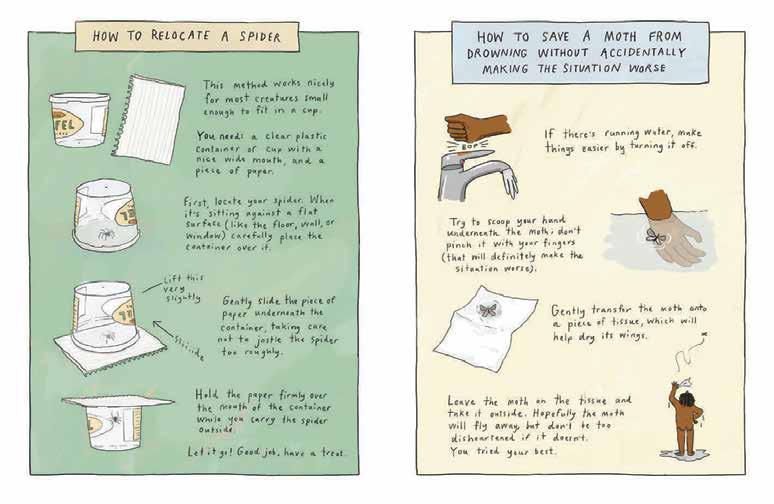 HOW TO RELOCATE A SPIDER
This method works nicely
for most creatures small
enough to fit in a cup.
You need: a clear plastic
container or cup with a
nice wide mouth, and a
piece of paper.
First, locate your spider. When
it's sitting against a flat
surface (like the floor, wall, or
window) carefully place the
container over it.
Lift this
very
slightly
Gently slide the piece of
paper underneath the
container, taking care
not to jostle the spider
too roughly.
Sliiiide
Hold the paper firmly over
the mouth of the container
while you carry the spider
outside.
Let it go! Good job, have a treat.
HOW TO SAVE A MOTH FROM
DROWNING WITHOUT ACCIDENTALLY
MAKING THE SITUATION WORSE
BOP
If there's running water, make
things easier by turning it off.
Try to scoop your hand
underneath the moth; don't
pinch it with your fingers
(that will definitely make the
situation worse).
Gently transfer the moth onto
a piece of tissue, which will
help dry its wings.
Leave the moth on the tissue and
take it outside. Hopefully the moth
will fly away, but don't be too
disheartened if it doesn't.
You tried your best.